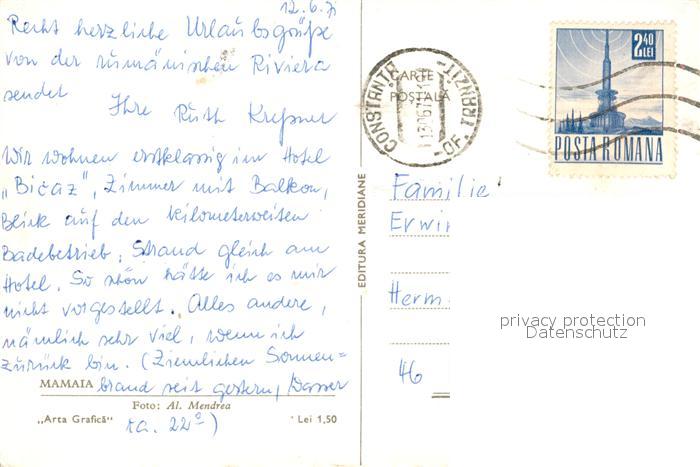 12.6.7
Recht herzliche Urlaubsgrüße
von der rumänischen Riviera
sendet
Ihre Ruth Kreßner
Wir wohnen erstklassig im Hotel
„Bičaz", Zimmer mit Balkon,
Blick auf den kilometerweiten
Badebetrieb, Strand gleich am
Hotel. So schön hätte ich es mir
nicht vorgestellt. Alles andere,
nämlich sehr viel, wenn ich
zurück bin. (Ziemlichen Sonnen=
MAMAIA brand seit gestern, Wasser
Foto: Al. Mendrea
„Arta Grafică" Lei 1,50
ca. 22°)
EDITURA MERIDIANE
CARTE
POȘTALĂ
CONSTANȚA
2,40
LEI
POSTA ROMANA
Familie
Erwi
Herm
46
privacy protection
Datenschutz